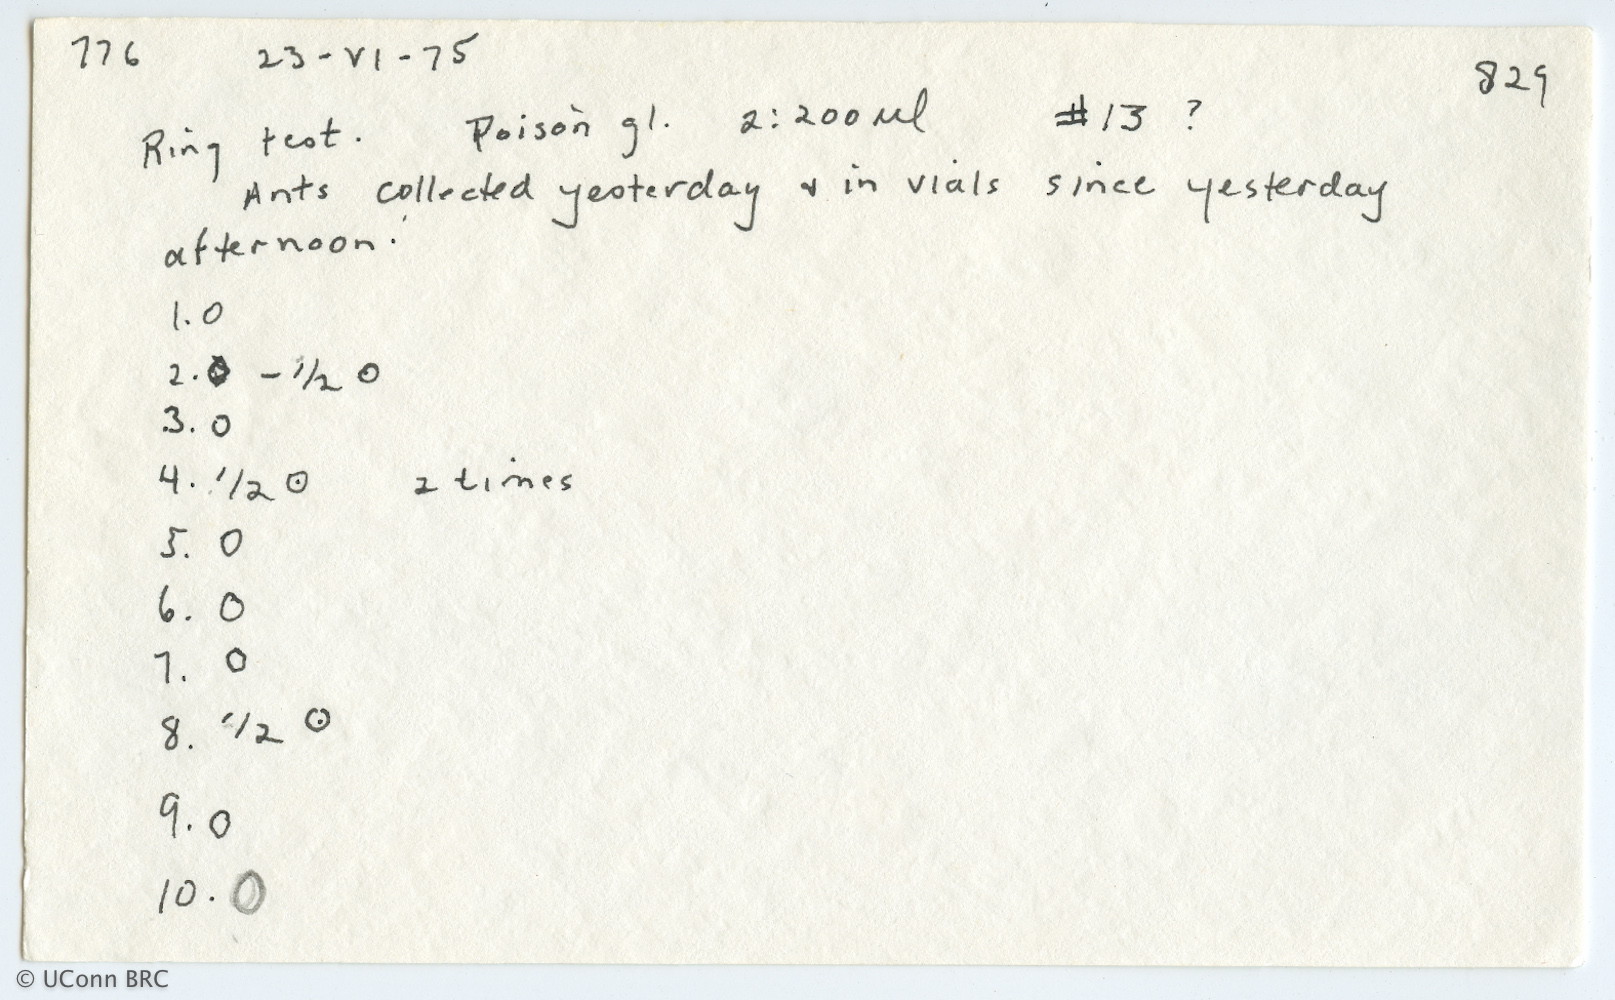 776 23-VI-75 829
Ring test. Poison gl. 2:200 µl #13 ?
Ants collected yesterday & in vials since yesterday
afternoon.
1. 0
2. 0 - 1/2 ⊙
3. 0
4. 1/2 ⊙ 2 times
5. 0
6. 0
7. 0
8. 1/2 ⊙
9. 0
10. 0
© UConn BRC